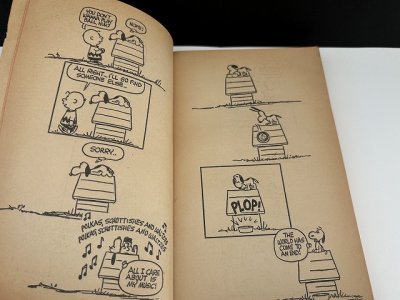 YOU DON'T
WANNA PLAY
BALL, HUH?
NOPE!
ALL RIGHT.. I'LL GO FIND
SOMEONE ELSE...
SORRY...
POLKAS, SCHOTTISHES AND WALTZES
POLKAS, SCHOTTISHES AND WALTZES
ALL I CARE
ABOUT IS
MY MUSIC!
PLOP!
THE WORLD HAS
COME TO
AN END!